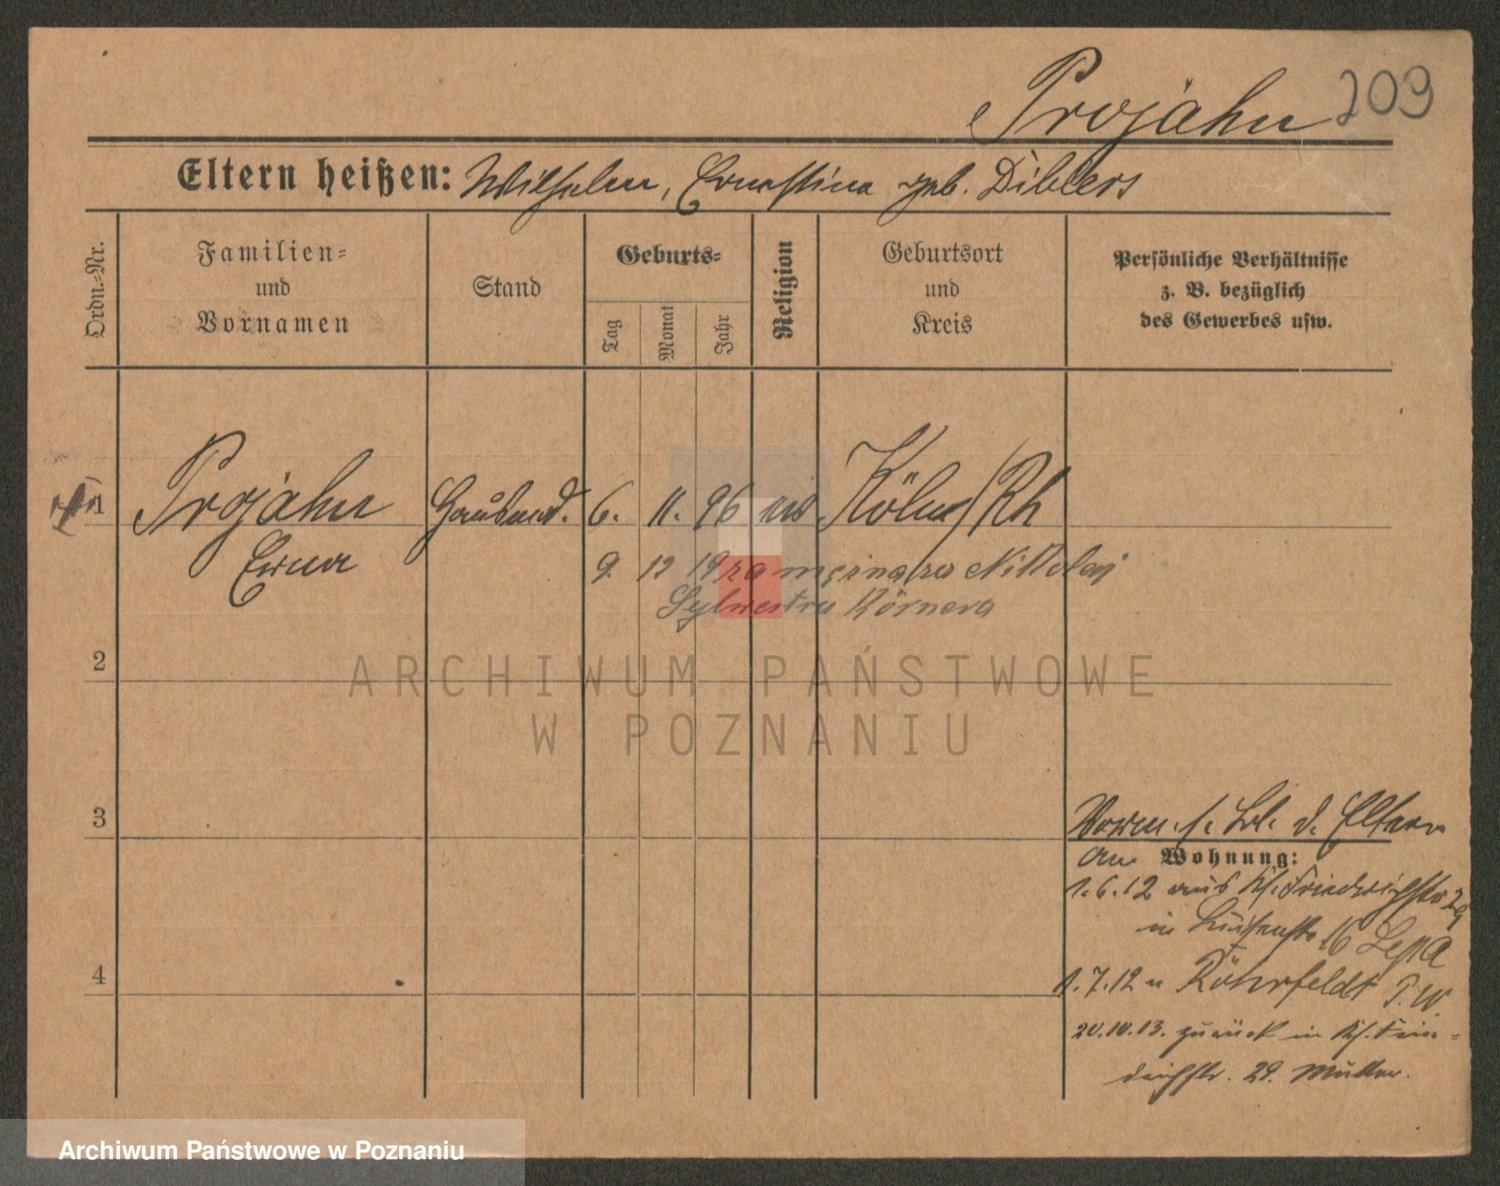 Projahn 209
Eltern heißen: Wilhelm, Ernestina geb. Diblers
Ordn.-Nr.
Familien-
und
Vornamen
Stand
Geburts-
Tag
Monat
Jahr
Religion
Geburtsort
und
Kreis
Persönliche Verhältnisse
z. B. bezüglich
des Gewerbes usw.
1 Projahn 6. 11. 96 Köln/Rh
Erna
9. 12 19 zamężna za Nikolaj
Sylwestra Körnera
2
3
d. Eltern
an Wohnung:
1.6.12 aus Kl. Friedrichstr 29
in Luisenstr 16
1.7.12 n Röhrfeldt P.W.
20.10.13. zurück in Kl. Frie-
drichstr. 29. Mutter.
4
ARCHIWUM PAŃSTWOWE
W POZNANIU
Archiwum Państwowe w Poznaniu